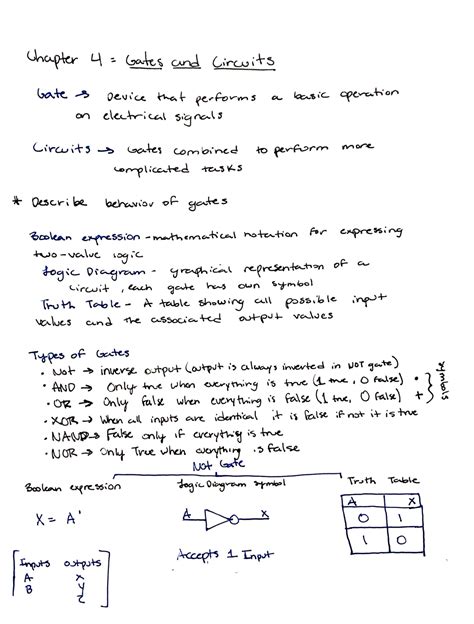 Chapter 4 = Gates and Circuits
Gate → Device that performs a basic operation
on electrical signals
Circuits → Gates combined to perform more
complicated tasks
* Describe behavior of gates
Boolean expression - mathematical notation for expressing
two-value logic
Logic Diagram - graphical representation of a
circuit, each gate has own symbol
Truth Table - A table showing all possible input
values and the associated output values
Types of Gates
• Not → inverse output (output is always inverted in NOT gate)
• AND → Only true when everything is true (1 true, 0 false) •
• OR → Only false when everything is false (1 true, 0 false) +
symbols
• XOR → When all inputs are identical it is false if not it is true
• NAND → False only if everything is true
• NOR → Only True when everything is false
Not Gate
Boolean expression Logic Diagram symbol Truth Table
X = A'
A X
A X
0 1
1 0
Accepts 1 Input
Inputs outputs
A X
B Y
Z